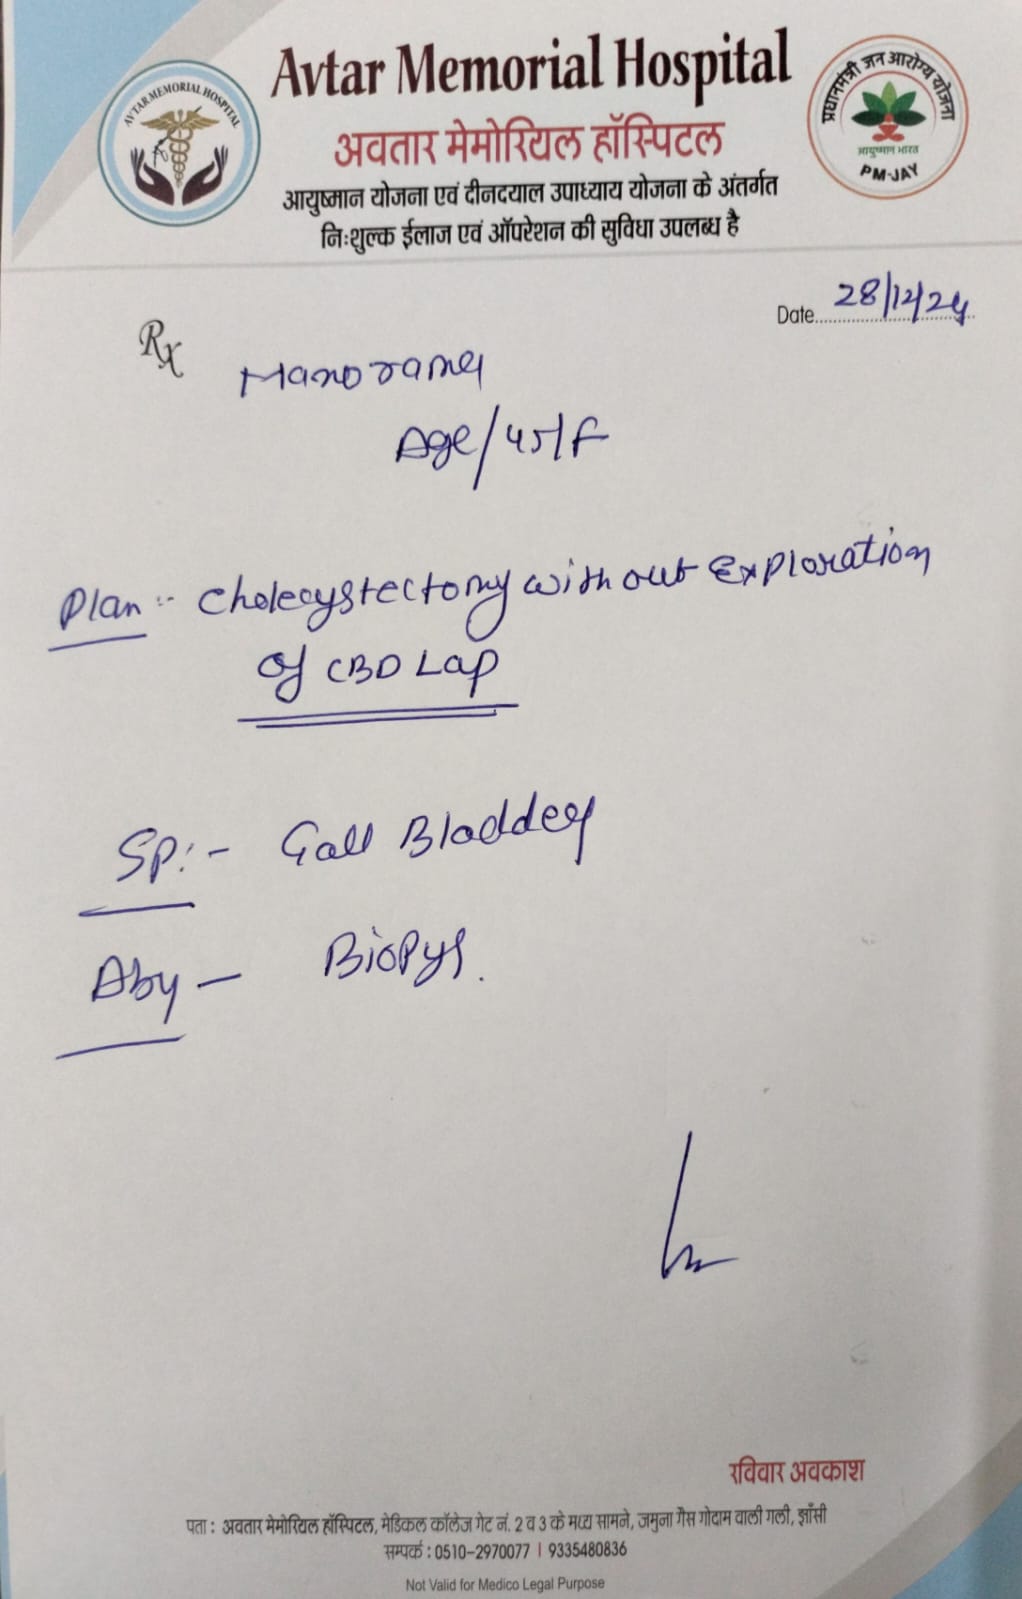 Avtar Memorial Hospital
अवतार मेमोरियल हॉस्पिटल
आयुष्मान योजना एवं दीनदयाल उपाध्याय योजना के अंतर्गत
निःशुल्क ईलाज एवं ऑपरेशन की सुविधा उपलब्ध है
AVTAR MEMORIAL HOSPITAL
प्रधानमंत्री जन आरोग्य योजना
आयुष्मान भारत
PM-JAY
Date 28/12/24
Rx
Manorama
Age/45/F
Plan :- Cholecystectomy without Exploration
of CBD Lap
Sp:- Gall Bladder
Aby - Biopys.
रविवार अवकाश
पता : अवतार मेमोरियल हॉस्पिटल, मेडिकल कॉलेज गेट नं. 2 व 3 के मध्य सामने, जमुना गैस गोदाम वाली गली, झाँसी
सम्पर्क : 0510-2970077 | 9335480836
Not Valid for Medico Legal Purpose